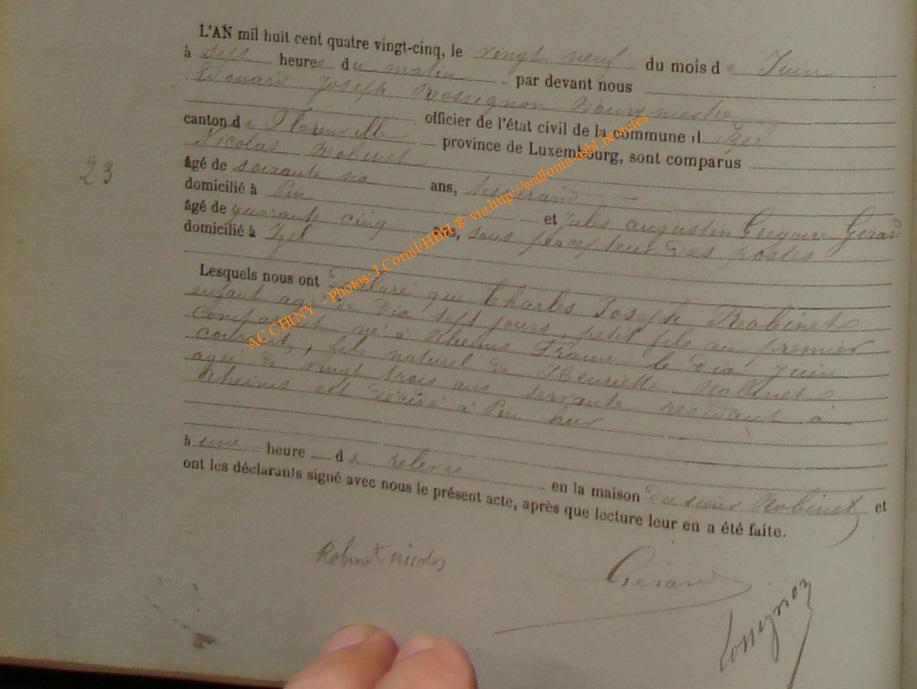 L'AN mil huit cent quatre vingt-cinq, le vingt neuf du mois de Juin
à sept heures du matin par devant nous
Edouard Joseph Rossignon Bourgmestre
officier de l'état civil de la commune d'Izel
canton de Florenville province de Luxembourg, sont comparus
Nicolas Robinet
23
âgé de soixante six ans, tisserand
domicilié à Pin et Jules augustin Grégoire Gérard
âgé de quarante cinq ans, sous percepteur des postes
domicilié à Izel
Lesquels nous ont déclaré que Charles Joseph Robinet
enfant agé de dix sept jours, petit fils au premier
comparant né à Rheims France le dix Juin
courant, fils naturel de Henriette Robinet
agée de vingt trois ans servante résidant à
Rheims est décédé à Pin hier
à une heure de relevée en la maison du sieur Robinet et
ont les déclarants signé avec nous le présent acte, après que lecture leur en a été faite.
Robinet nicolas Gérard
Rossignon
ACCHINY - Photos J Conil/HBH ® via http://wallonia-asbl.be/actes